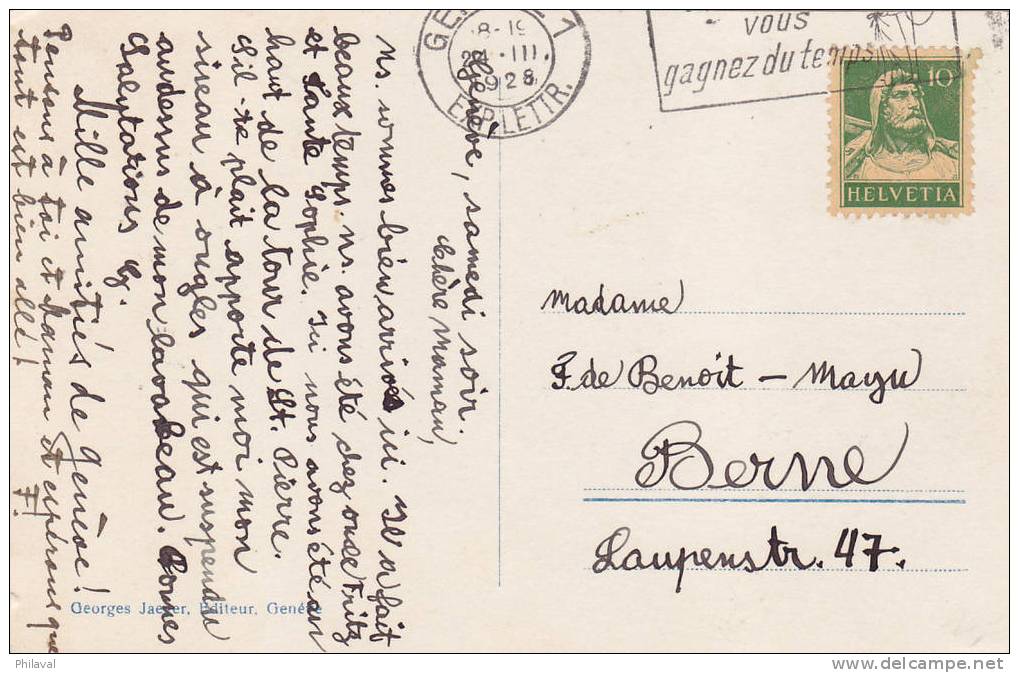 Genève, samedi soir.
Chère Maman,
ns. sommes bien arrivés ici. Il a fait
beaux temps. ns. avons été chez oncle Fritz
et tante Sophie. Ici nous avons été au
haut de la tour de St. Pierre.
S'il-te plait apporte moi mon
siseau à ongles qui est suspendu
au dessus de mon lavabeau. Bonnes
Salutations G.
Mille amitiés de Genève!
Pensons à toi et Maman et espérons que
tout est bien allé! F.
Georges Jaeger, Editeur, Genève
8-19
III
1928
EXP. LETTR.
1
vous
gagnez du temps
10
HELVETIA
Madame
F. de Benoit - Mayu
Berne
Laupenstr. 47.
Philaval
delcampe.net